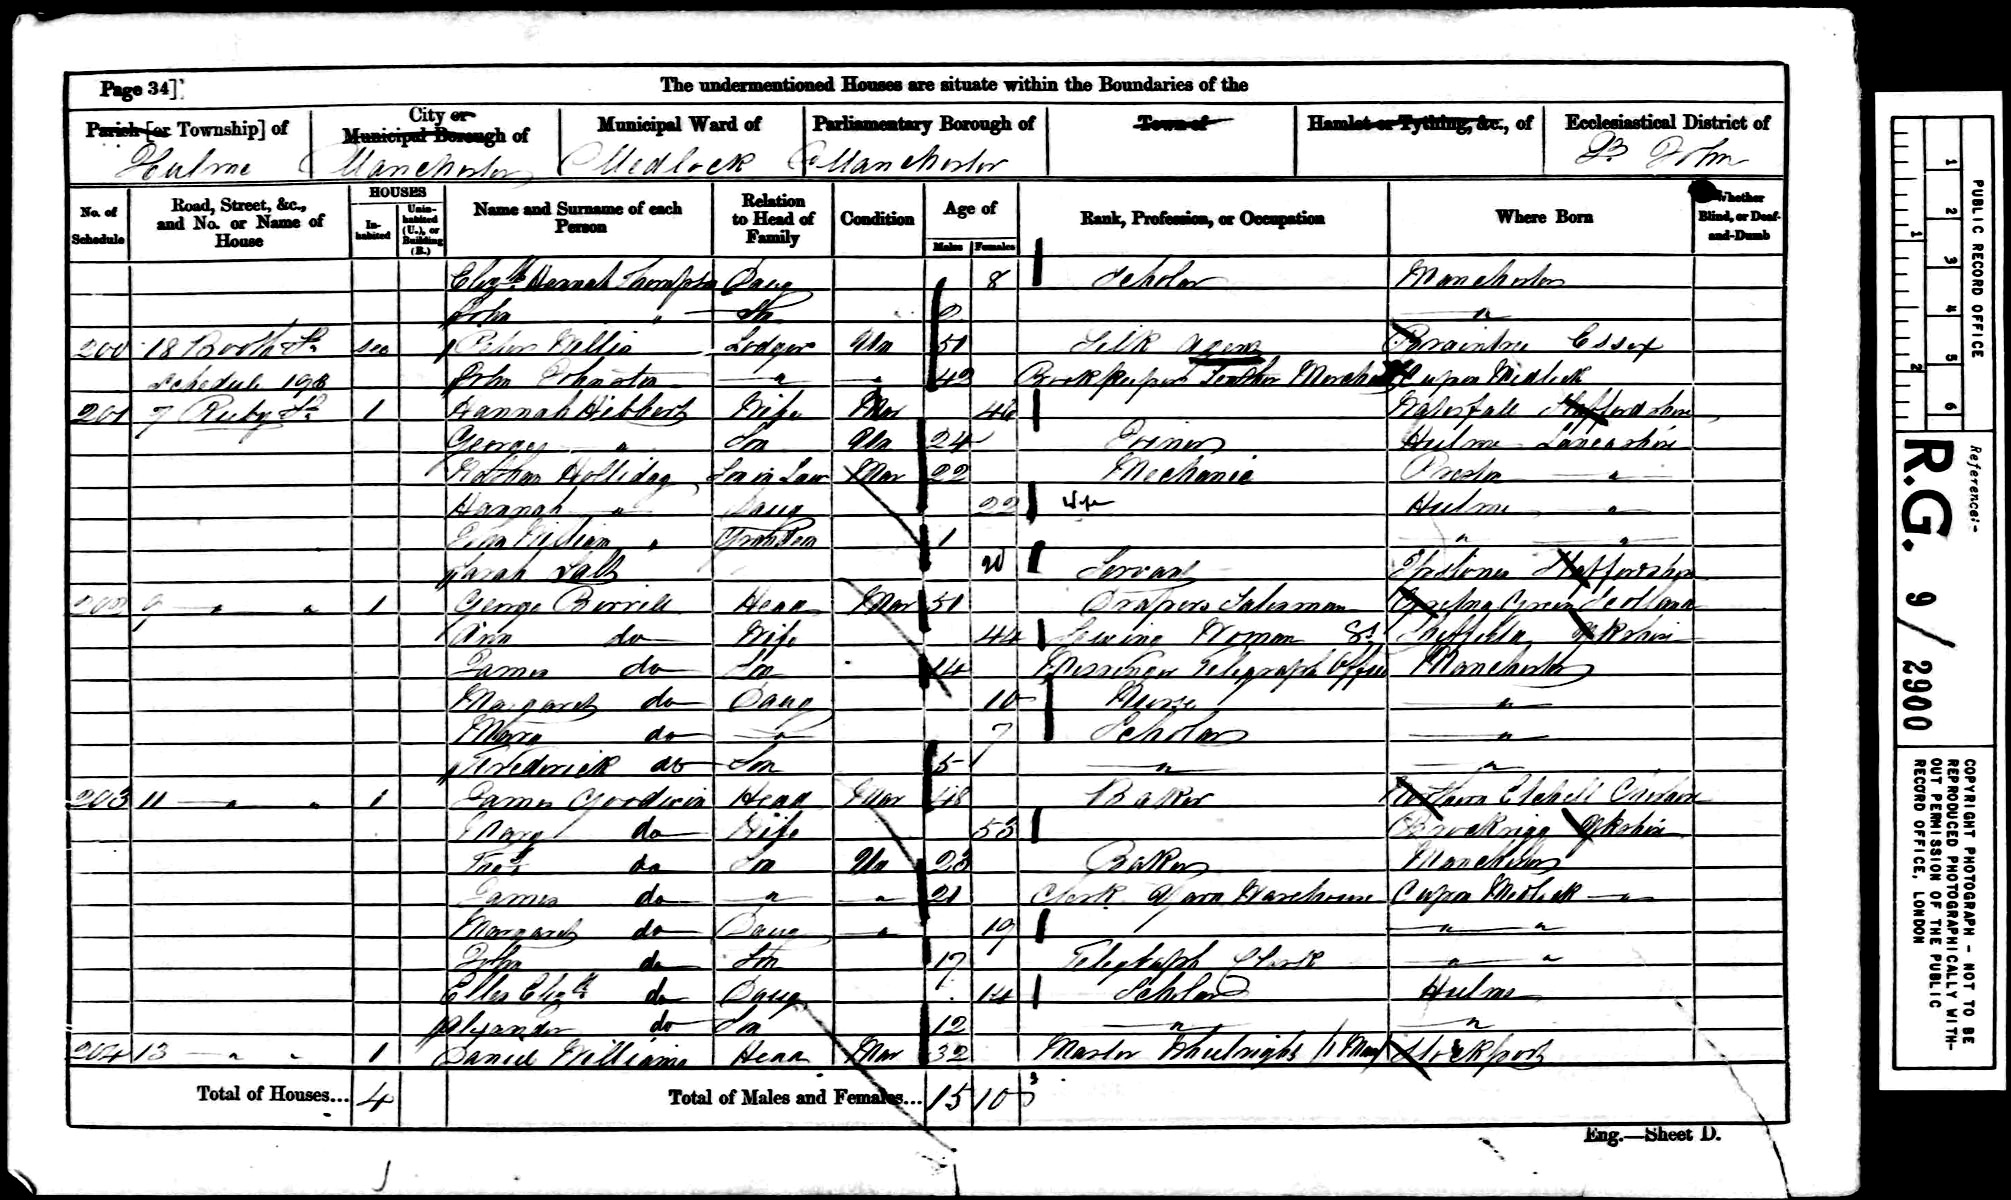 Page 34]
The undermentioned Houses are situate within the Boundaries of the
Parish [or Township] of
City or Municipal Borough of
Municipal Ward of
Parliamentary Borough of
Town of
Hamlet or Tything, &c., of
Ecclesiastical District of
Hulme Manchester Medlock Manchester St John
No. of Schedule
Road, Street, &c., and No. or Name of House
HOUSES
In-habited
Unin-habited (U.), or Building (B.)
Name and Surname of each Person
Relation to Head of Family
Condition
Age of
Males
Females
Rank, Profession, or Occupation
Where Born
Whether Blind, or Deaf-and-Dumb
Elizth Hannah Thompson Daug 8 Scholar Manchester
John " Son "
200 18 Booth St see Peter Willis Lodger Un 51 Silk Agent Braintree Essex
Schedule 198 John Johnston " " 43 Bookkeeper Leather Merchant C upon Medlock
201 7 Ruby St 1 Hannah Hibbert Wife Mar 46 Waterfall Staffordshire
George " Son Un 24 Joiner Hulme Lancashire
Holliday Son in Law Mar 22 Mechanic Preston "
Hannah " Daug 22 Wife Hulme "
William " Grandson 1 " "
Sarah Salt 20 Servant Ipstones Staffordshire
202 9 " " 1 George Birrell Head Mar 51 Drapers Salesman Gretna Green Scotland
Ann do Wife 44 Sewing Woman Sheffield Yorkshire
James do Son 14 Messenger Telegraph Office Manchester
Margaret do Daug 10 Nurse "
Mary do " 7 Scholar "
Frederick do Son 5 " "
203 11 " " 1 James Goodwin Head Mar 48 Baker Cheshire
Mary do Wife 53 Yorkshire
Thos do Son Un 23 Baker Manchester
James do " " 21 Clerk Yarn Warehouse C upon Medlock "
Margaret do Daug " 19 " "
John do Son 17 Telegraph Clerk " "
Ellen Elizth do Daug 14 Scholar Hulme
Alexander do Son 12 " "
204 13 " " 1 Daniel Williams Head Mar 32 Master Wheelright (1 Man) Stockport
Total of Houses... 4
Total of Males and Females... 15 10
Eng.—Sheet D.
PUBLIC RECORD OFFICE
1 2 3 4 5 6
1 2
Reference:-
R.G. 9/2900
COPYRIGHT PHOTOGRAPH - NOT TO BE
REPRODUCED PHOTOGRAPHICALLY WITH-
OUT PERMISSION OF THE PUBLIC
RECORD OFFICE, LONDON